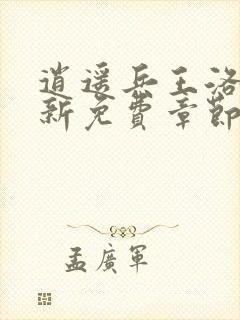 逍遥兵王洛
新免费章節
孟廣軍